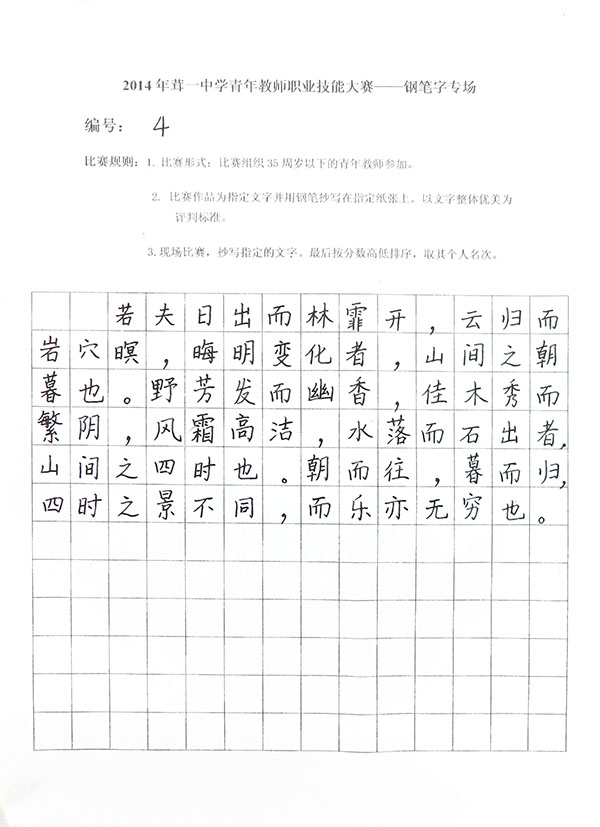 2014年茸一中学青年教师职业技能大赛——钢笔字专场
编号： 4
比赛规则：1. 比赛形式：比赛组织35周岁以下的青年教师参加。
2. 比赛作品为指定文字并用钢笔抄写在指定纸张上。以文字整体优美为
评判标准。
3.现场比赛，抄写指定的文字。最后按分数高低排序，取其个人名次。
若夫日出而林霏开，云归而
岩穴暝，晦明变化者，山间之朝
暮也。野芳发而幽香，佳木秀而
繁阴，风霜高洁，水落而石出者，
山间之四时也。朝而往，暮而归，
四时之景不同，而乐亦无穷也。